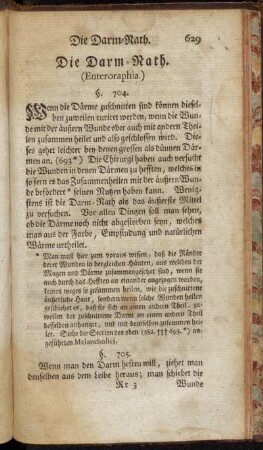 Die Darm-Nath. 629
Die Darm-Nath.
(Enteroraphia.)
§. 704.
Wenn die Därme zuschnitten sind können diesel-
ben zuweilen curiret werden, wenn die Wun-
de mit der äusern Wunde oder auch mit andern Thei-
len zusammen heilet und also geschlossen wird. Die-
ses gehet leichter bey denen grossen als dünnen Där-
men an. (693 *) Die Chirurgi haben auch versucht
die Wunden in denen Därmen zu hefften, welches in
so fern es das Zusammenheilen mit der äusern Wun-
de befördert * seinen Nutzen haben kann. Wenig-
stens ist die Darm-Nath als das äuserste Mittel
zu versuchen. Vor allen Dingen soll man sehen,
ob die Därme noch nicht abgestorben seyn, welches
man aus der Farbe, Empfindung und natürlichen
Wärme urtheilet.
* Man muß hier zum voraus wissen, daß die Ränder
derer Wunden in dergleichen Häuten, aus welchen der
Magen und Därme zusammengesetzet sind, wenn sie
auch durch das Hefften an einander angezogen werden,
keines weges so zusammen heilen, wie die zuschnittene
äuserliche Haut, sondern wenn solche Wunden heilen
geschiehet es, daß sie sich an einen andern Theil, zu-
weilen der zuschnittene Darm an einen andern Theil
desselben anhänget, und mit demselben zusammen hei-
let. Siehe die Section des oben (282. ††† 693. *) an-
geführten Melancholici.
§. 705.
Wenn man den Darm heften will, ziehet man
denselben aus dem Leibe heraus; man schiebt die
Rr 3 Wunde